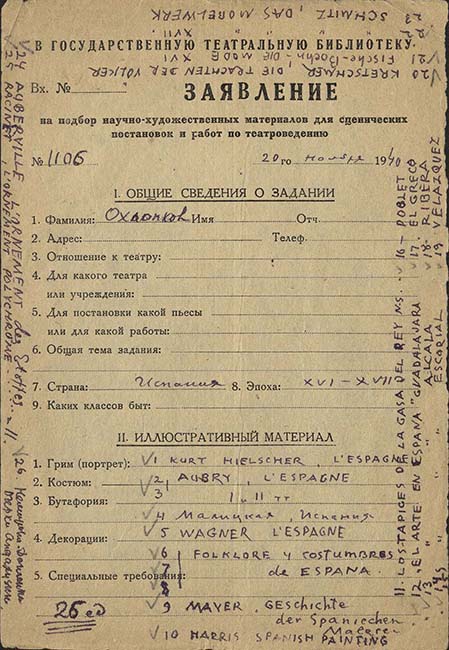 SCHMITZ, DAS MOBELWERK
XVII
21 Fische-Boehn, DIE MODE XVI
20 KRETSCHMER, DIE TRACHTEN DER VÖLKER
В ГОСУДАРСТВЕННУЮ ТЕАТРАЛЬНУЮ БИБЛИОТЕКУ
Вх. №
ЗАЯВЛЕНИЕ
на подбор научно-художественных материалов для сценических
постановок и работ по театроведению
№ 1106
20го ноября 1940
I. ОБЩИЕ СВЕДЕНИЯ О ЗАДАНИИ
1. Фамилия: Охлопков Имя Отч.
2. Адрес: Телеф.
3. Отношение к театру:
4. Для какого театра
или учреждения:
5. Для постановки какой пьесы
или для какой работы:
6. Общая тема задания:
7. Страна: Испания 8. Эпоха: XVI-XVII
9. Каких классов быт:
II. ИЛЛЮСТРАТИВНЫЙ МАТЕРИАЛ
1. Грим (портрет): V1 KURT HIELSCHER, L'ESPAGNE
2. Костюм: V2 AUBRY, L'ESPAGNE
3. Бутафория: 3 I и II тт
V4 Малицкая, Испания
4. Декорации: V5 WAGNER L'ESPAGNE
V6 FOLKLORE y COSTUMBRES
5. Специальные требования: 7 de ESPANA
8
V9 MAYER, GESCHICHTE
der Spanischen
Malerei
V10 HARRIS SPANISH PAINTING
25 ед
V24 AUBERVILLE L'ORNEMENT des Etoffes
V25 RACINET, L'ORNEMENT POLYCHROME
V26.
11. LOS TAPICES DE LA CASA DEL REY N.S.
12. EL ARTE EN ESPANA "GUADALAJARA
13 ALCALA
ESCORIAL
V16 - POBLET
V17. EL GRECO
V18. RIBERA
V19 VELAZQUEZ